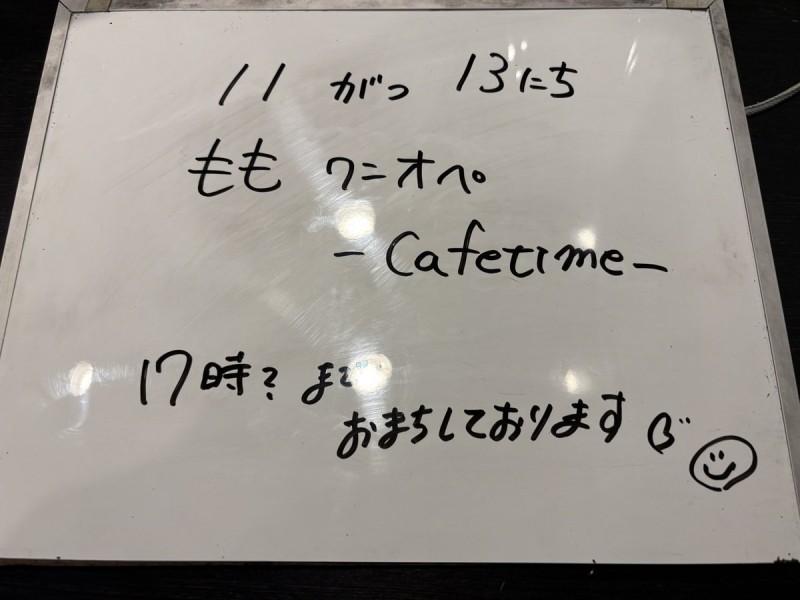 11 がつ 13にち
もも ワニオペ
-Cafetime-
17時? まで
おまちしております